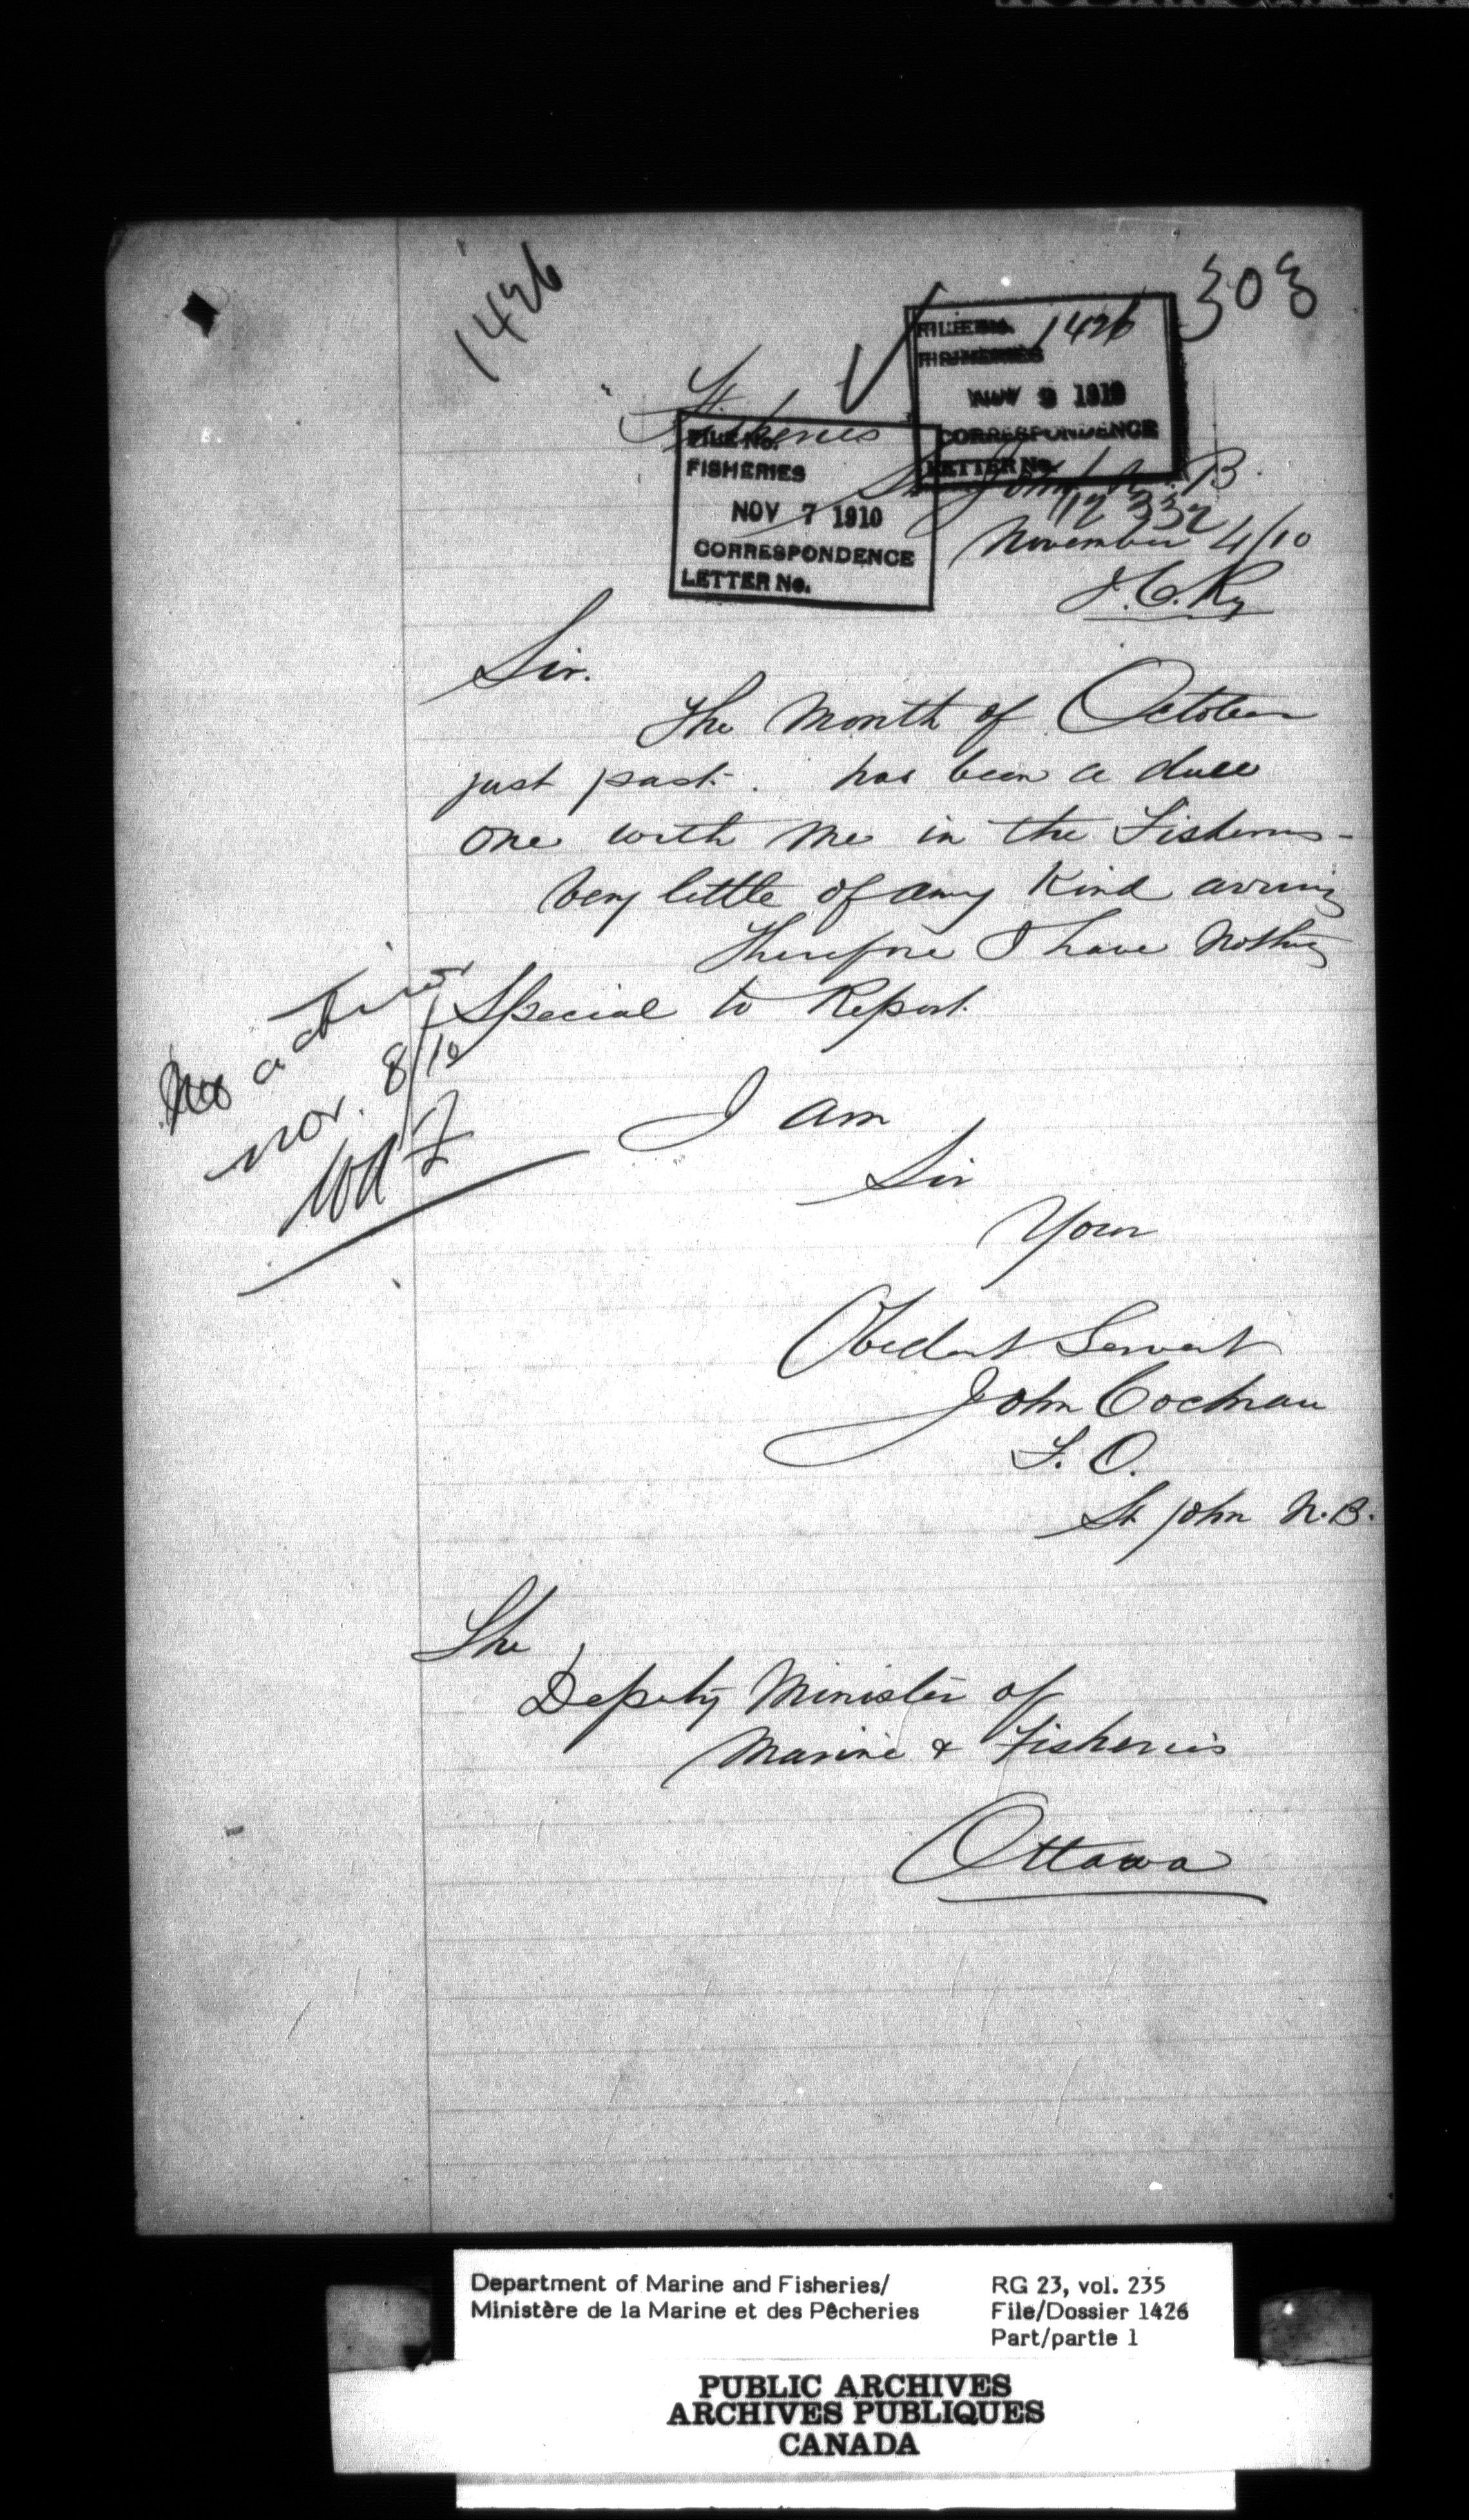 1426
303
FILE No. 1426
FISHERIES
NOV 9 1910
CORRESPONDENCE
LETTER No.
12332
Fisheries
FILE No.
FISHERIES
NOV 7 1910
CORRESPONDENCE
LETTER No.
St John N. B.
November 4/10
Sir.
The Month of October
just past. has been a dull
one with me in the Fisheries -
Very little of any Kind arriving
Therefore I have Nothing
Special to Report.
No action
Nov. 8/10
I am
Sir
Your
Obedient Servant
John Cochran
F. O.
St John N.B.
The
Deputy Minister of
Marine & Fisheries
Ottawa
Department of Marine and Fisheries/
Ministère de la Marine et des Pêcheries
RG 23, vol. 235
File/Dossier 1426
Part/partie 1
PUBLIC ARCHIVES
ARCHIVES PUBLIQUES
CANADA